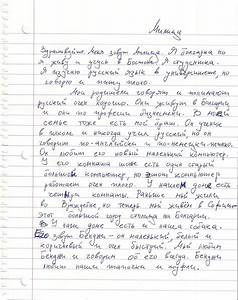 Милица
Здравствуйте! Меня зовут Милица. Я болгарка но
я живу и учусь в Я студентка.
Я изучаю русский язык в университете, но
говорю и пишу плохо.
Мои родители говорят и понимают
русский очень хорошо. Они живут в Болгарии
и они по профессии В моей
семье тоже есть мой брат. Он учится
в школе и никогда учил русский, но он
говорит по-английски и по-немецки
Он любит его новый маленький компьютер.
У его комната тоже есть один старый
большой компьютер, но этот компьютер
работает очень плохо. У нашем доме есть
комнаты. Раньше мы жили
во но теперь мы живём в София
Этот большой город столица на Болгарии.
У наш доме есть и наша собака.
Его зовут Бенджи он маленький белый и
коричневый и очень быстрый. Мой любит
Бенджи и говорит об его Бенджи
любит наши и